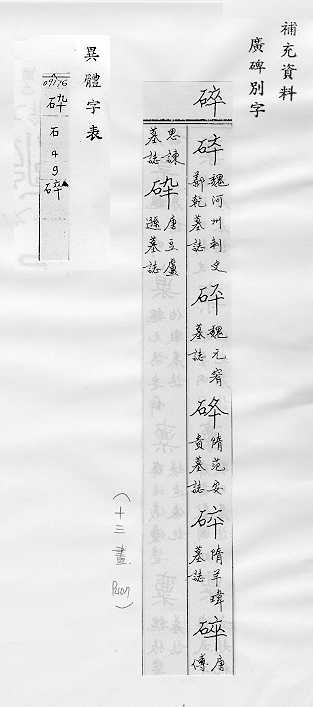 補充資料
廣碑別字
碎
魏河州刺史
鄯乾墓誌
魏元宥
墓誌
隋范安
貴墓誌
碎
隋羊瑋
墓誌
碎
唐
傅
思諫
墓誌
砕
唐豆盧
遜墓誌
(十三畫)
異體字表
砕
石
4
9
碎